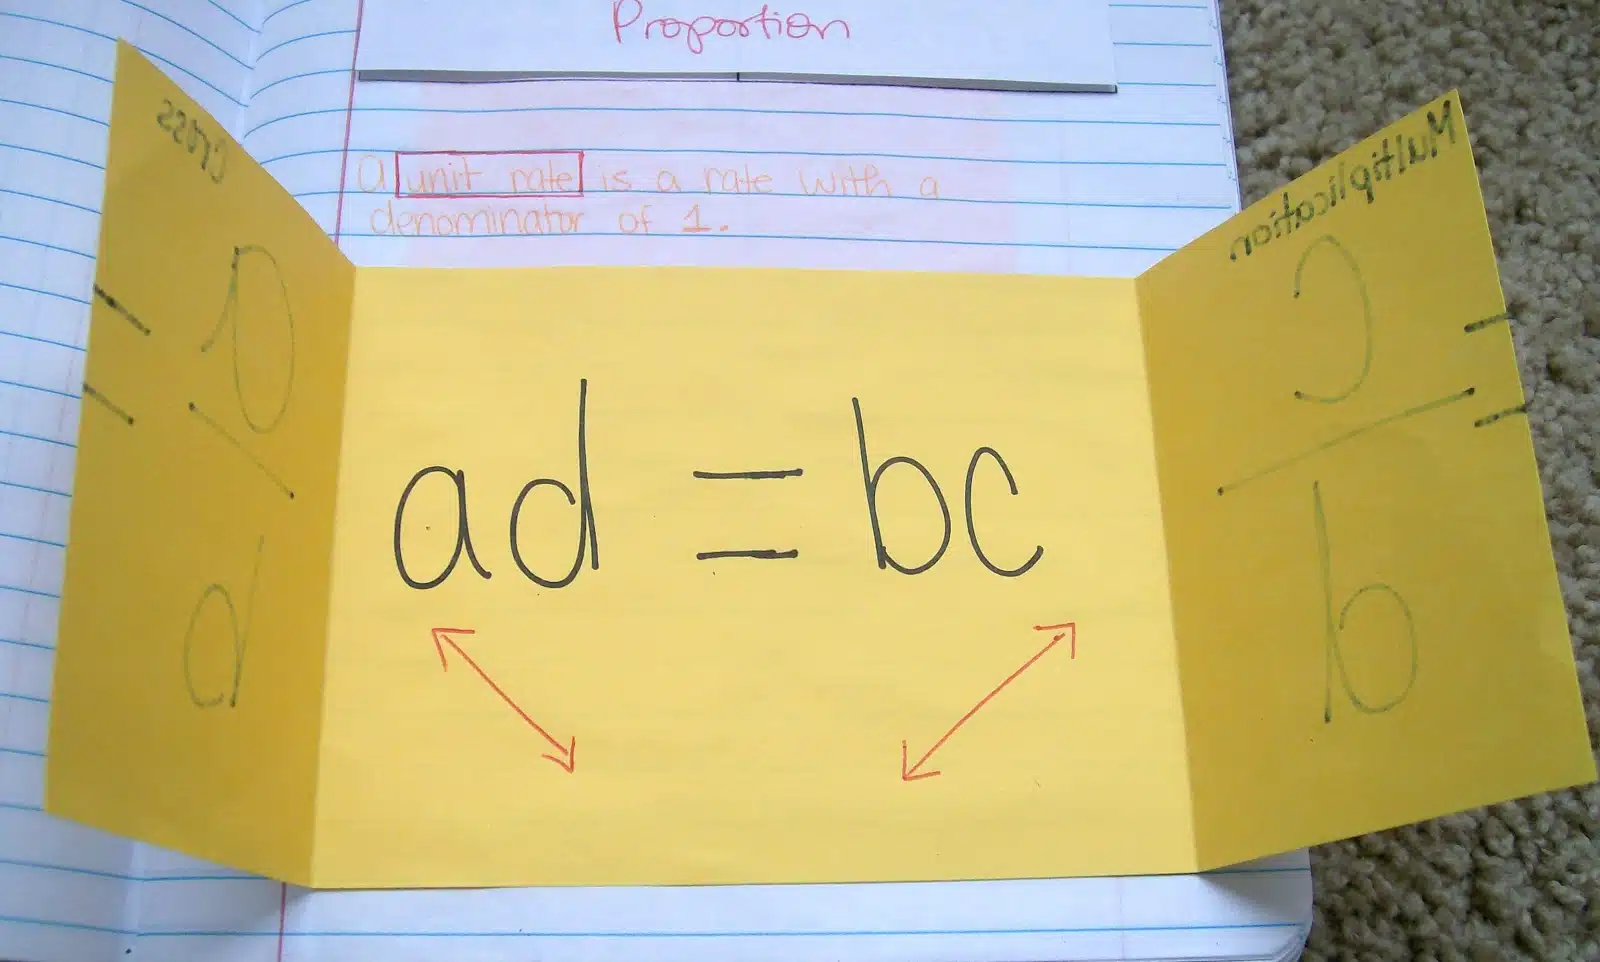 Proportion
A unit rate is a rate with a
denominator of 1.
Cross
a
b
=
ad = bc
Multiplication
c
d
=